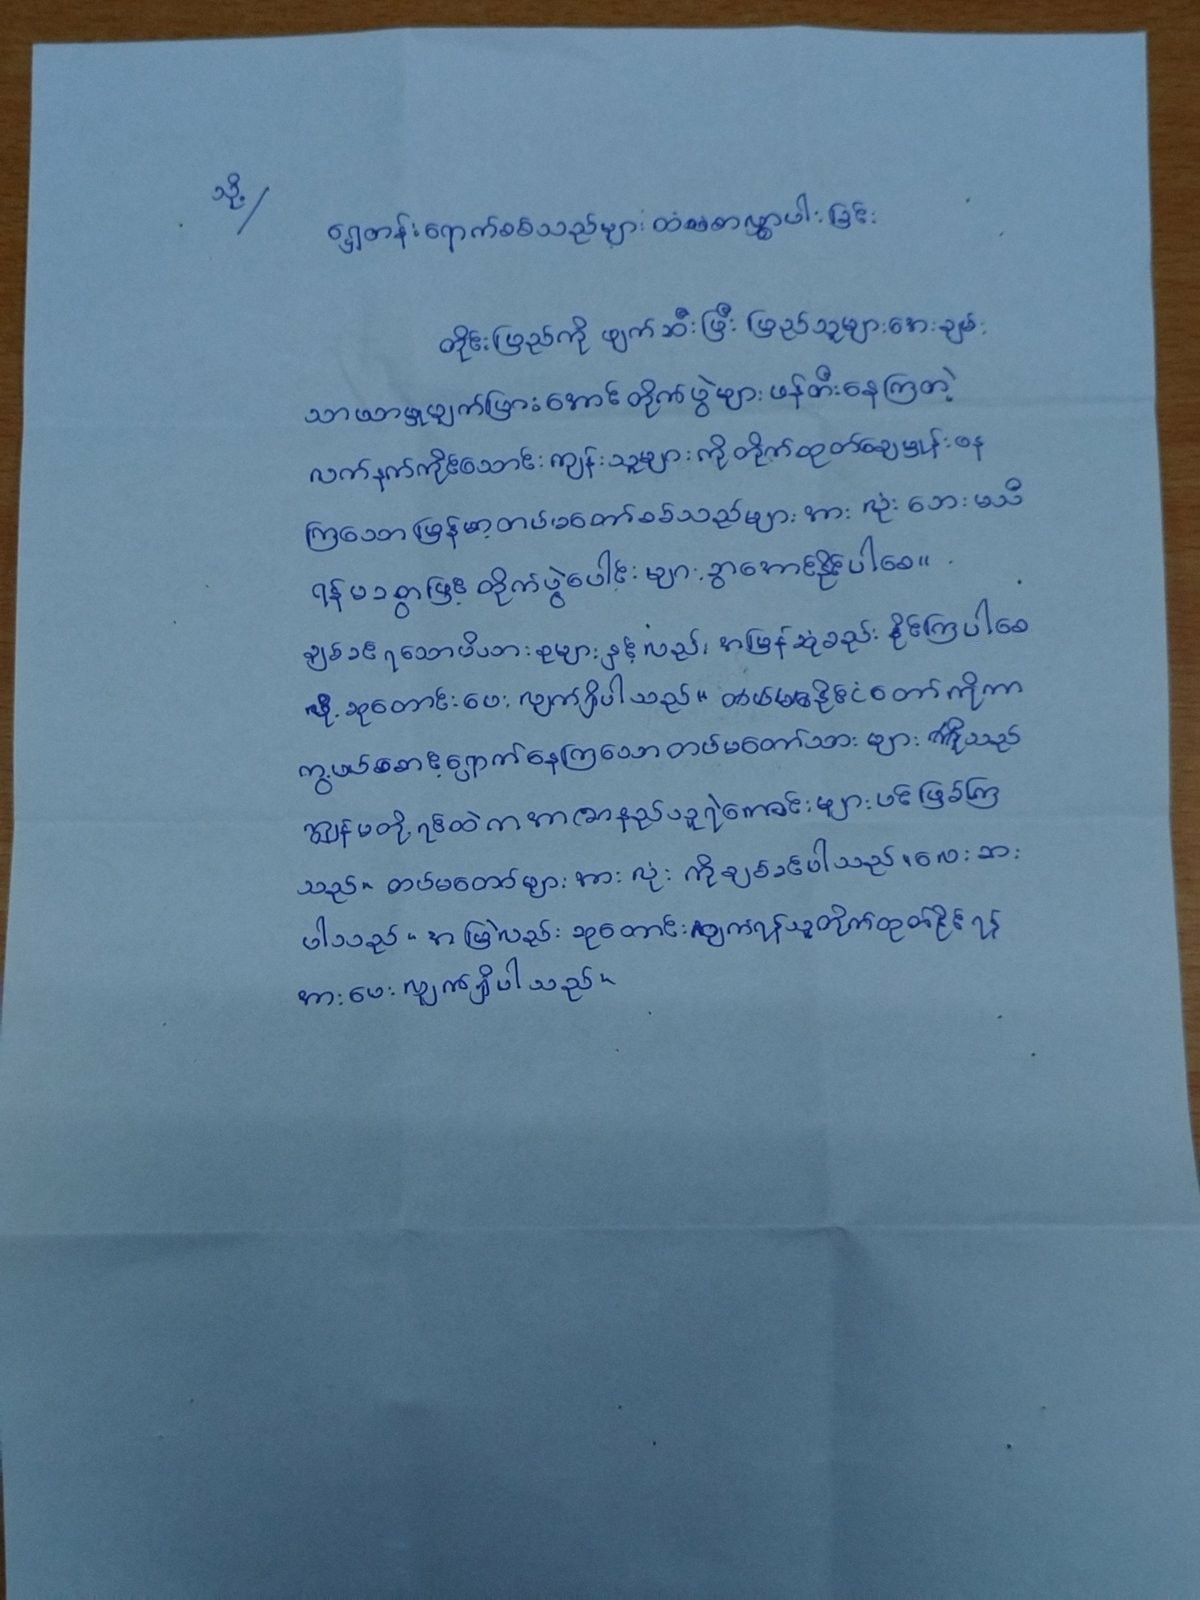 သို့/
ရှေ့တန်းရောက်စစ်သည်များထံစာလွှာပါးခြင်း
တိုင်းပြည်ကို ဖျက်ဆီးပြီး ပြည်သူများအေးချမ်း
သာယာမှုပျက်ပြားအောင်တိုက်ပွဲများဖန်တီးနေကြတဲ့
လက်နက်ကိုင်သောင်းကျန်းသူများကိုတိုက်ထုတ်ချေမှုန်းနေ
ကြသောမြန်မာ့တပ်မတော်စစ်သည်များအားလုံးဘေးမသီ
ရန်မခဖြင့်တိုက်ပွဲပေါင်းများစွာအောင်နိုင်ပါစေ။
ချစ်ခင်ရသောမိဘများနှင့်လည်းအမြန်ဆုံစည်းနိုင်ကြပါစေ
လို့ဆုတောင်းပေးလျှက်ရှိပါသည်။ နိုင်ငံတော်ကိုကာ
ကွယ်စောင့်ရှောက်နေကြသောတပ်မတော်သားများကိုသည်
ကျွန်မတို့ရင်ထဲကအာဇာနည်သူရဲကောင်းများပင်ဖြစ်ကြ
သည်။ တပ်မတော်များအားလုံးကိုချစ်ခင်ပါသည်။လေးစား
ပါသည်။အမြဲလည်းဆုတောင်းလျှက်ရန်သူတိုက်ထုတ်နိုင်ရန်
အားပေးလျှက်ရှိပါသည်။